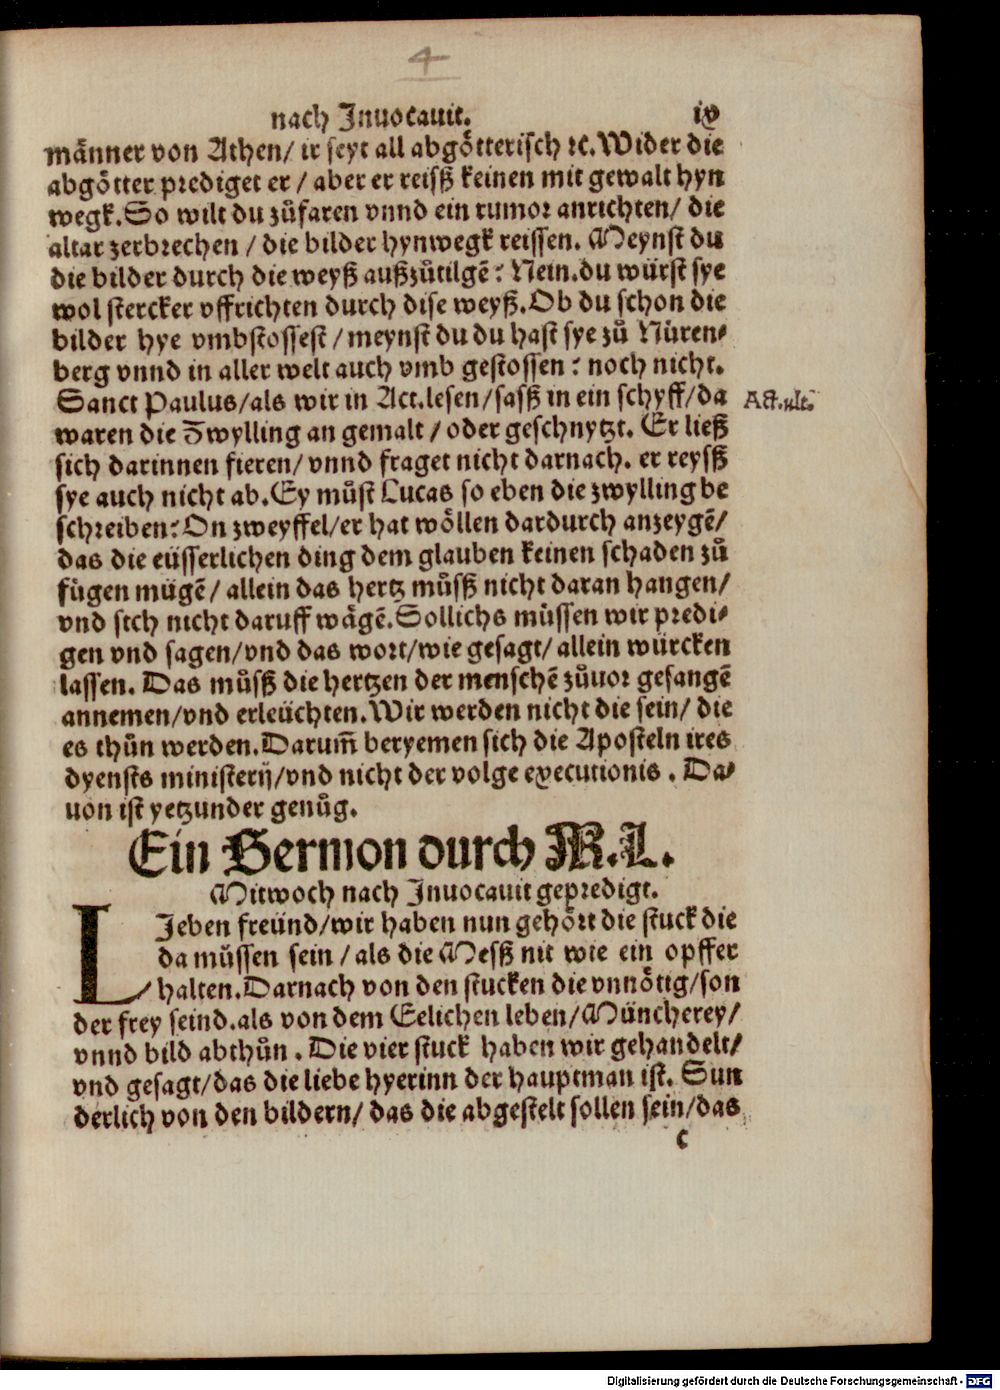 4
nach Inuocauit. ix
männer von Athen/ ir seyt all abgötterisch ꝛc. Wider die
abgötter prediget er / aber er reisß keinen mit gewalt hyn
wegk. So wilt du zůfaren vnnd ein rumor anrichten/ die
altar zerbrechen / die bilder hynwegk reissen. Meynst du
die bilder durch die weyß außzůtilgē? Nein. du würst sye
wol stercker vffrichten durch dise weyß. Ob du schon die
bilder hye vmbstossest / meynst du du hast sye zů Nüren⸗
berg vnnd in aller welt auch vmb gestossen? noch nicht.
Sanct Paulus/ als wir in Act. lesen/ sasß in ein schyff/ da
Act. ult.
waren die Zwylling an gemalt / oder geschnytzt. Er ließ
sich darinnen fieren/ vnnd fraget nicht darnach. er reysß
sye auch nicht ab. Ey můst Lucas so eben die zwylling be
schreiben? On zweyffel/ er hat wöllen dardurch anzeygē/
das die eüsserlichen ding dem glauben keinen schaden zů
fügen mügē / allein das hertz můsß nicht daran hangen/
vnd sich nicht daruff wägē. Sollichs müssen wir predi⸗
gen vnd sagen/ vnd das wort/ wie gesagt/ allein würcken
lassen. Das můsß die hertzen der menschē zůuor gefangē
annemen/ vnd erleüchten. Wir werden nicht die sein/ die
es thůn werden. Darum̄ beryemen sich die Aposteln ires
dyensts ministerij/ vnd nicht der volge executionis . Da⸗
uon ist yetzunder genůg.
Ein Sermon durch M. L.
Mitwoch nach Inuocauit geprediget.
LJeben freünd/ wir haben nun gehört die stuck die
da müssen sein / als die Mesß nit wie ein opffer
halten. Darnach von den stucken die vnnötig/ son
der frey seind. als von dem Eelichen leben/ Müncherey/
vnnd bild abthůn . Die vier stuck haben wir gehandelt/
vnd gesagt/ das die liebe hyerinn der hauptman ist. Sun
derlich von den bildern/ das die abgestelt sollen sein/ das
c
Digitalisierung gefördert durch die Deutsche Forschungsgemeinschaft - DFG